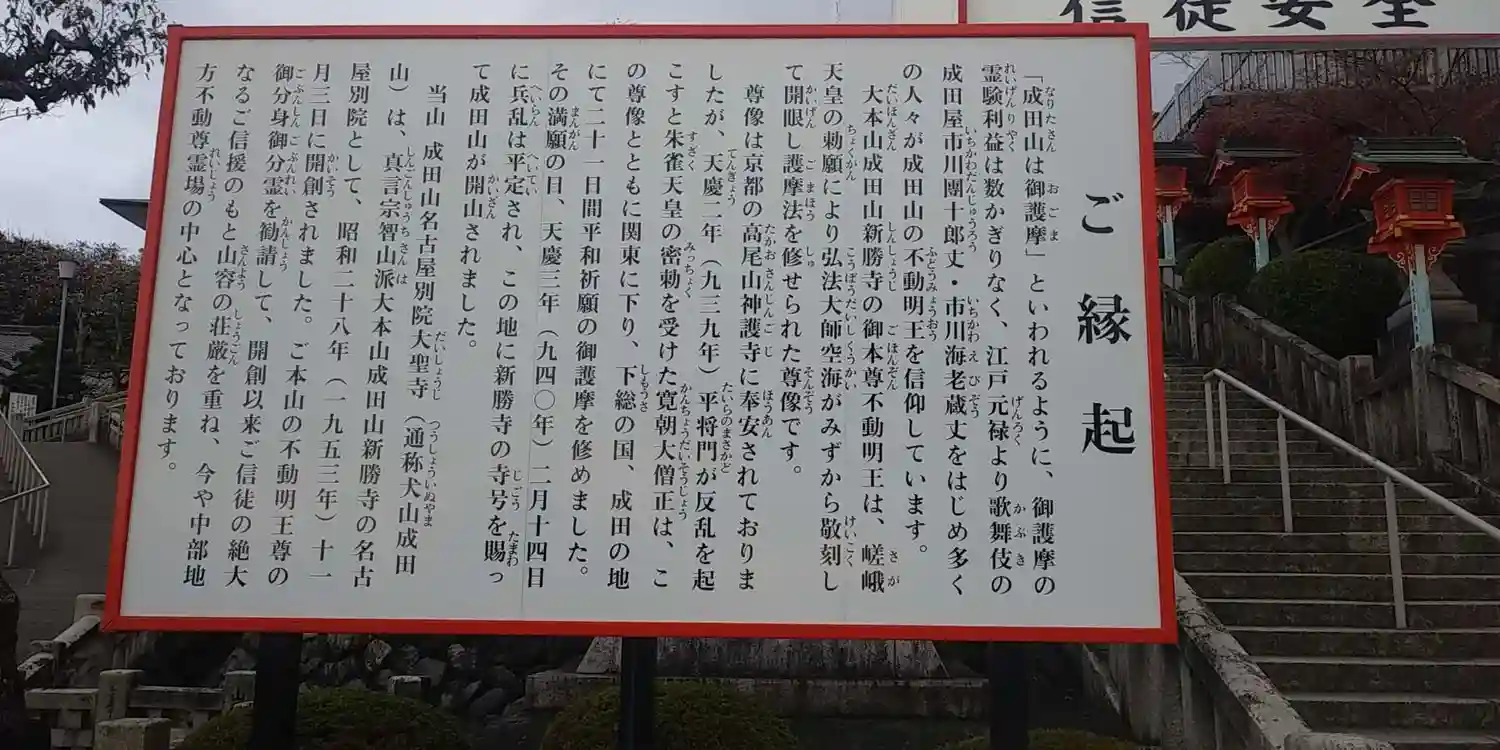 信徒安全
ご縁起
「成田山は御護摩」といわれるように、御護摩の
霊験利益は数かぎりなく、江戸元禄より歌舞伎の
成田屋市川團十郎丈・市川海老蔵丈をはじめ多く
の人々が成田山の不動明王を信仰しています。
大本山成田山新勝寺の御本尊不動明王は、嵯峨
天皇の勅願により弘法大師空海がみずから敬刻し
て開眼し護摩法を修せられた尊像です。
尊像は京都の高尾山神護寺に奉安されておりま
したが、天慶二年（九三九年）平将門が反乱を起
こすと朱雀天皇の密勅を受けた寛朝大僧正は、こ
の尊像とともに関東に下り、下総の国、成田の地
にて二十一日間平和祈願の御護摩を修めました。
その満願の日、天慶三年（九四〇年）二月十四日
に兵乱は平定され、この地に新勝寺の寺号を賜っ
て成田山が開山されました。
当山 成田山名古屋別院大聖寺（通称犬山成田
山）は、真言宗智山派大本山成田山新勝寺の名古
屋別院として、昭和二十八年（一九五三年）十一
月三日に開創されました。ご本山の不動明王尊の
御分身御分霊を勧請して、開創以来ご信徒の絶大
なるご信援のもと山容の荘厳を重ね、今や中部地
方不動尊霊場の中心となっております。